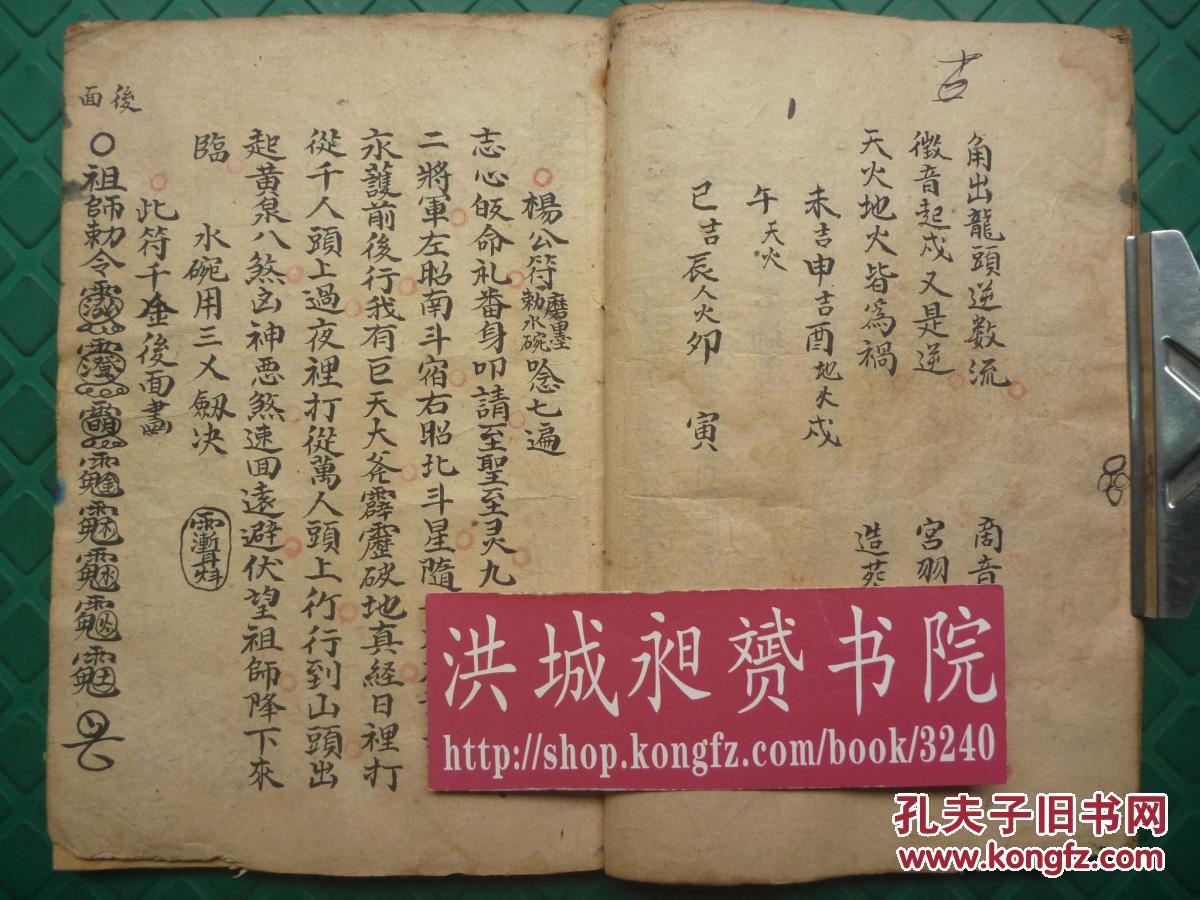 吉
角出龍頭逆数流
商音
徵音起戍又是逆
宮羽
天火地火皆為禍
造葬
未吉申吉酉地火戍
午天火
巳吉辰人火夘 寅
楊公符磨墨勅水碗唸七遍
志心皈命礼畨身叩請至聖至灵九
二將軍左昭南斗宿右昭北斗星隨
永護前後行我有巨天大斧霹靂破地真経日裡打
從千人頭上過夜裡打從萬人頭上行行到山頭出
起黃泉八煞凶神悪煞速回遠避伏望祖師降下來
臨 水碗用三乂劔决
此符千金後面畫
後面
祖師勅令
洪城昶赟书院
http://shop.kongfz.com/book/3240
孔夫子旧书网
www.kongfz.com